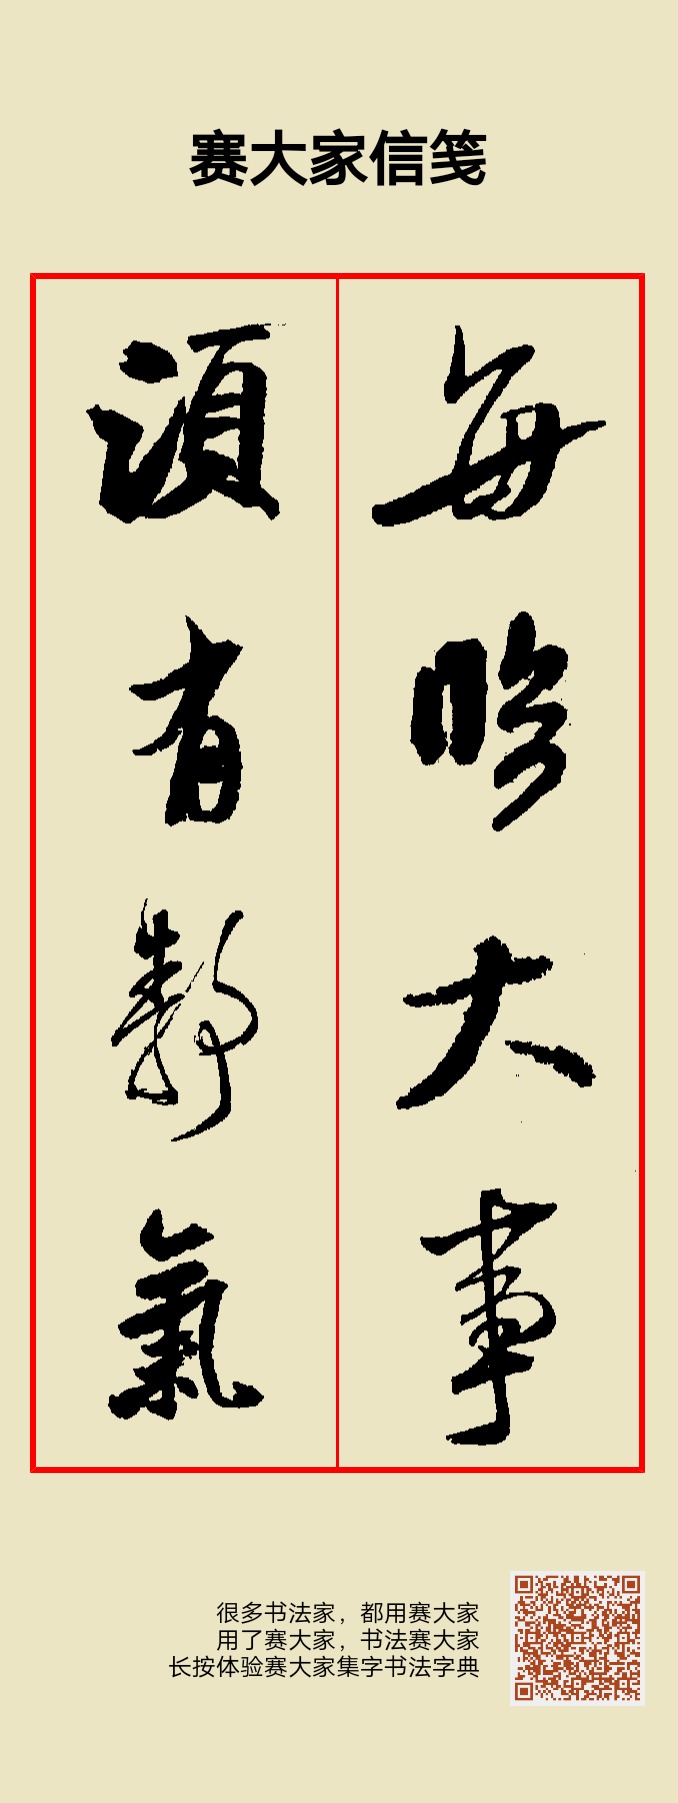 赛大家信笺
每临大事
須有靜氣
很多书法家，都用赛大家
用了赛大家，书法赛大家
长按体验赛大家集字书法字典